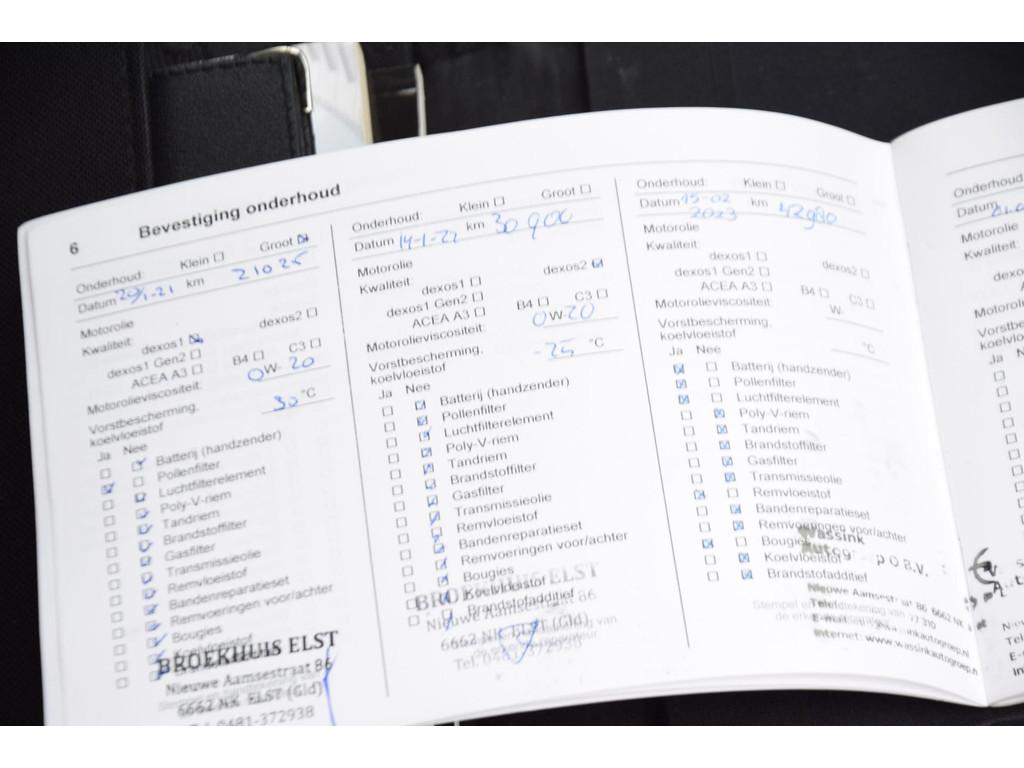 6 Bevestiging onderhoud
Onderhoud: Klein Groot
Datum 29/1-21 km 21025
Motorolie
Kwaliteit: dexos1 dexos2
dexos1 Gen2
ACEA A3 B4 C3
Motorolieviscositeit: 0W- 20
Vorstbescherming, koelvloeistof 30 °C
Ja Nee
Batterij (handzender)
Pollenfilter
Luchtfilterelement
Poly-V-riem
Tandriem
Brandstoffilter
Gasfilter
Transmissieolie
Remvloeistof
Bandenreparatieset
Remvoeringen voor/achter
Bougies
Koelvloeistof
BROEKHUIS ELST
Nieuwe Aamsestraat 86
6662 NK ELST (Gld)
Tel. 0481-372938
Onderhoud: Klein Groot
Datum 14-1-22 km 30900
Motorolie
Kwaliteit: dexos1 dexos2
dexos1 Gen2
ACEA A3 B4 C3
Motorolieviscositeit: 0W-20
Vorstbescherming, koelvloeistof -25 °C
Ja Nee
Batterij (handzender)
Pollenfilter
Luchtfilterelement
Poly-V-riem
Tandriem
Brandstoffilter
Gasfilter
Transmissieolie
Remvloeistof
Bandenreparatieset
Remvoeringen voor/achter
Bougies
Koelvloeistof
Brandstofadditief
BROEKHUIS ELST
Nieuwe Aamsestraat 86
6662 NK ELST (Gld)
Tel. 0481-372938
Onderhoud: Klein Groot
Datum 15-02 2023 km 42980
Motorolie
Kwaliteit:
dexos1 dexos2
dexos1 Gen2
ACEA A3 B4 C3
Motorolieviscositeit: W-
Vorstbescherming,
koelvloeistof °C
Ja Nee
Batterij (handzender)
Pollenfilter
Luchtfilterelement
Poly-V-riem
Tandriem
Brandstoffilter
Gasfilter
Transmissieolie
Remvloeistof
Bandenreparatieset
Remvoeringen voor/achter
Bougies
Koelvloeistof
Brandstofadditief
Wassink
Autogr p B.V.
Nieuwe Aamsestr at 86 6662 NK
Stempel en
Internet: www.wassinkautogroep.nl
Onderhoud:
Datum
Motorolie
Kwaliteit:
Ja